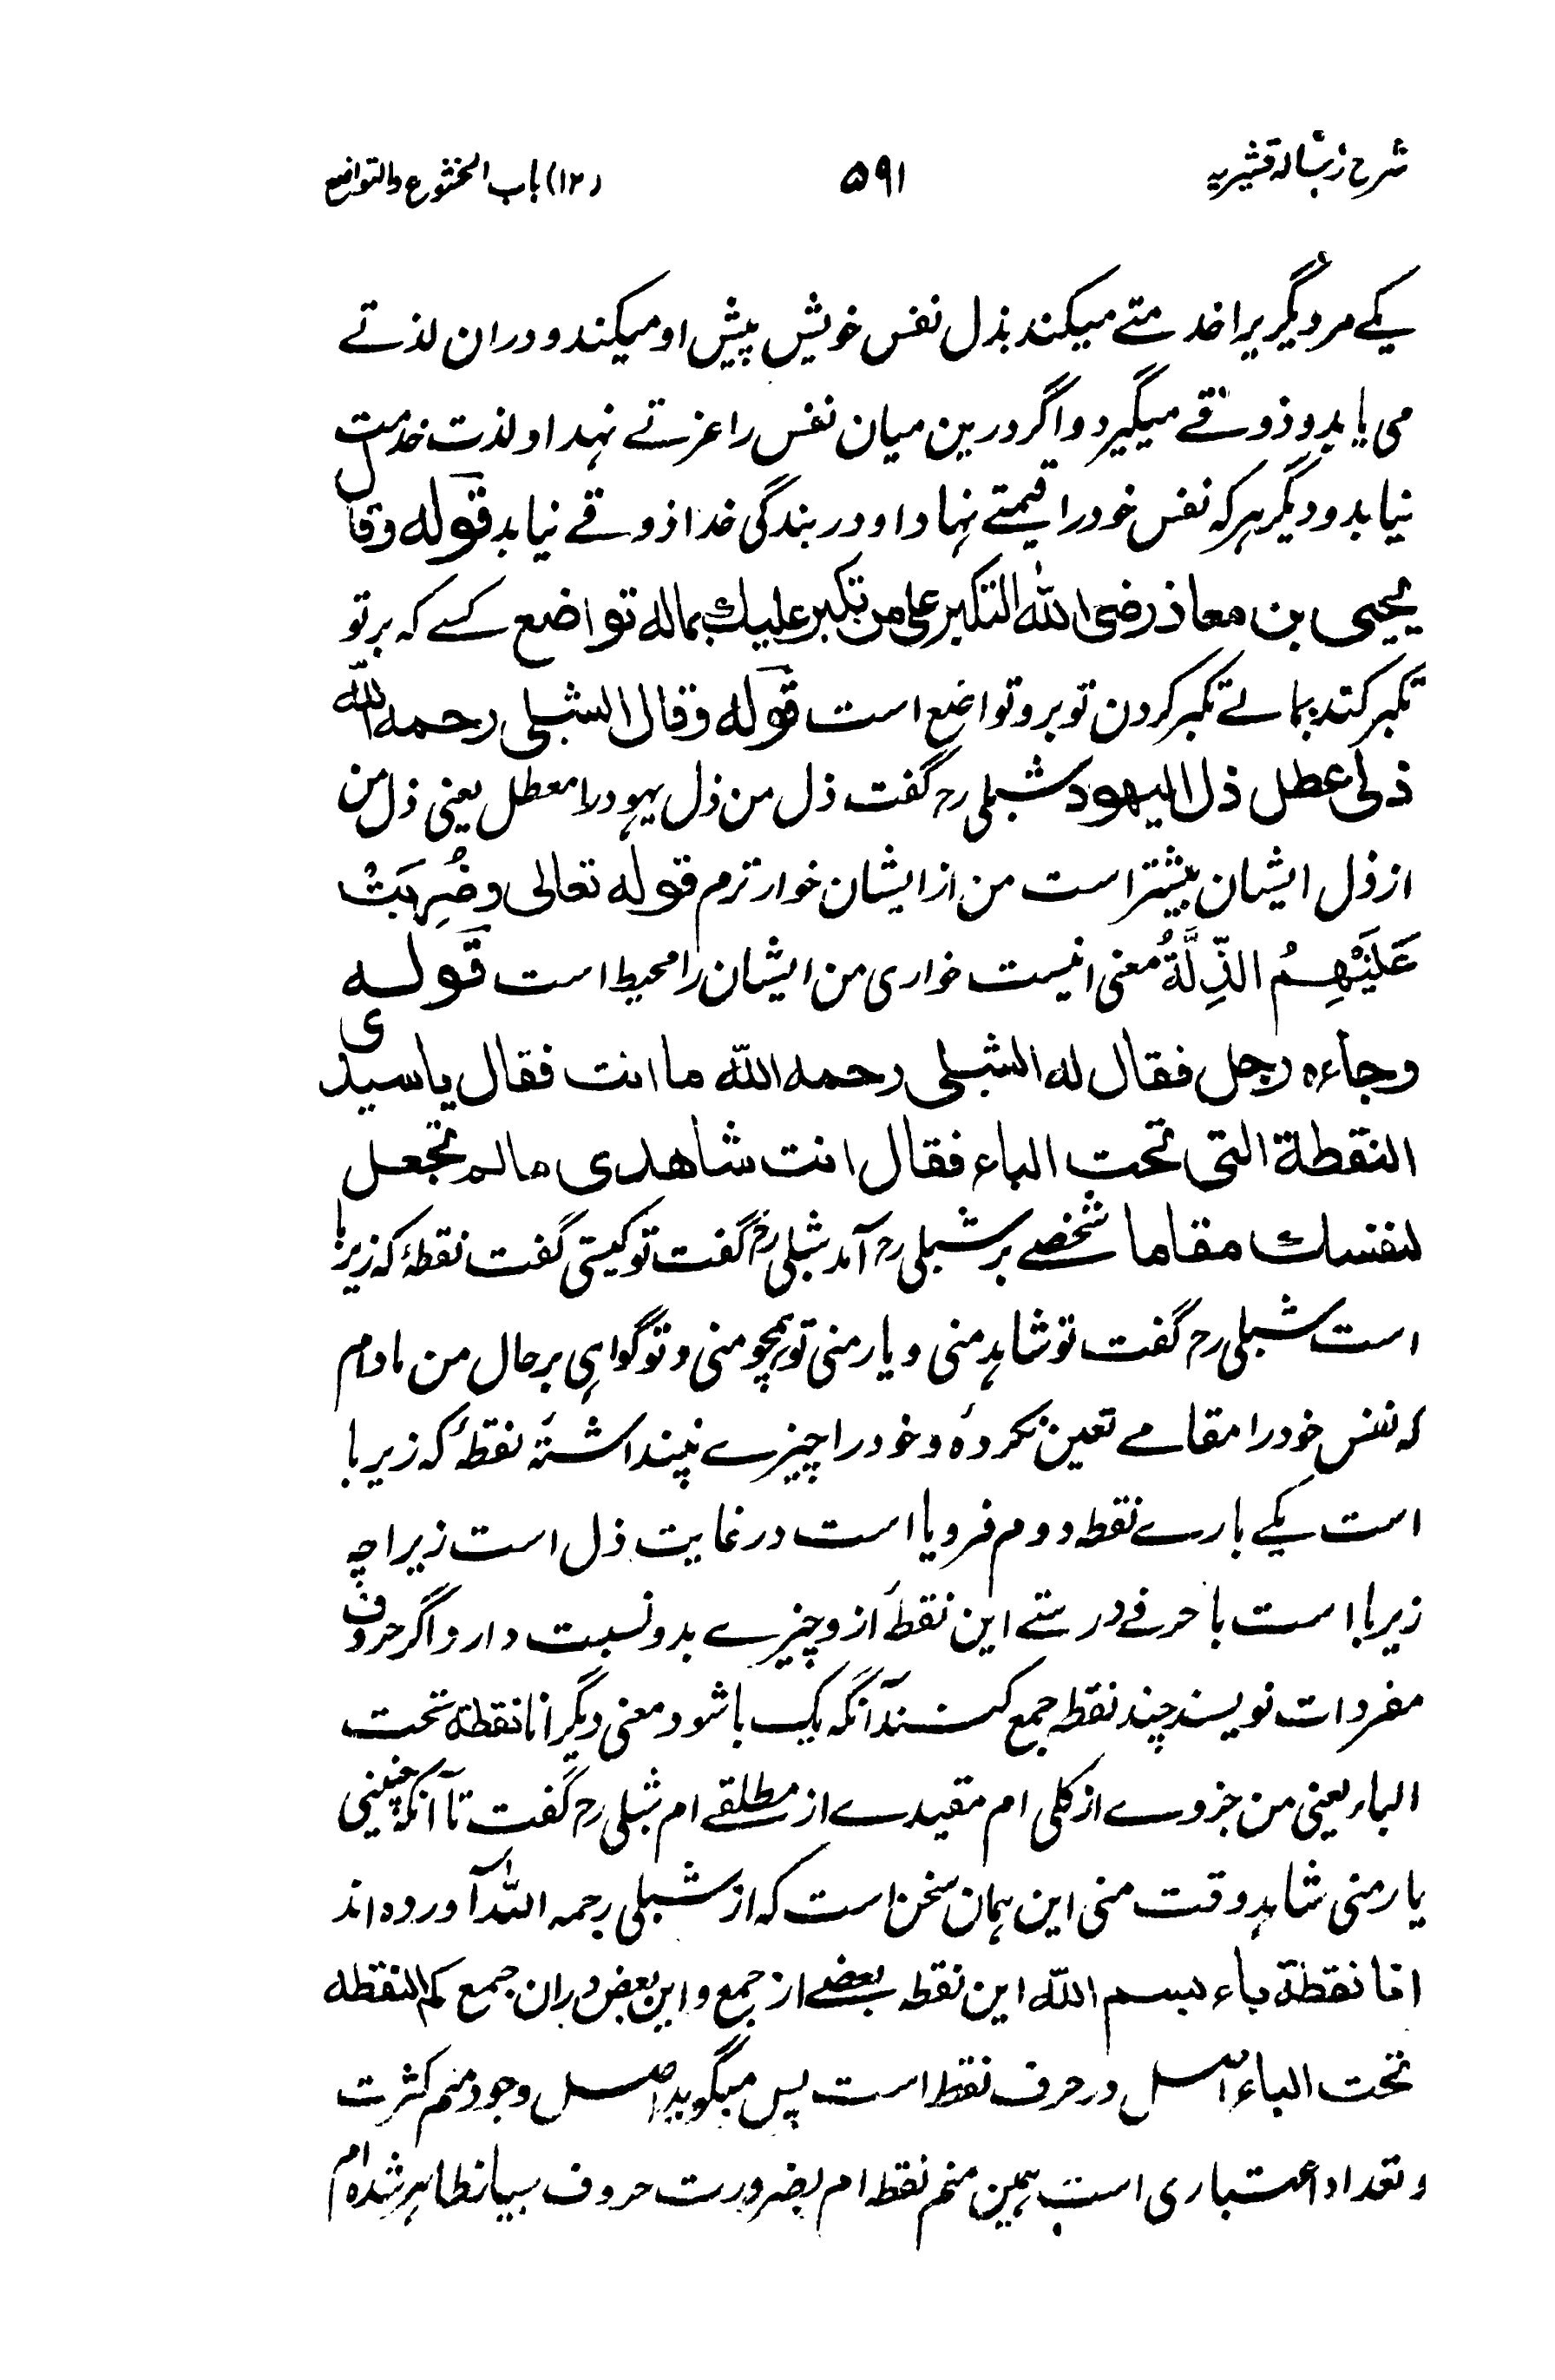 شرح رساله قشیریه ۵۹۱ (۱۲) باب الخشوع والتواضع
یکے مر دیگریرا خدمتے میکند بذل نفس خویش پیش او میکند و دران لذتے
می یابد و ذوقے میگیرد و اگر درین میان نفس را عزتے نهد او لذت خدمت
نیابد و دیگر هرکه نفس خود را قیمتے نهاد او در بندگی خدا ذوقے نیابد قوله وقال
یحیی بن معاذ رضی الله التکبر علی من تکبر علیك بماله تواضع کسے که بر تو
تکبر کند بمالے تکبر کردن تو برو تواضع است قوله وقال الشبلی رحمه الله
ذلی عطل ذل الیهود شبلی رح گفت ذل من ذل یهود را معطل یعنی ذل من
از ذل ایشان بیشتر است من از ایشان خوار ترم قوله تعالی وضُرِبَتْ
عَلَیْهِمُ الذِّلَّةُ معنی اینست خواری من ایشان را محیط است قوله
وجاءه رجل فقال له الشبلی رحمه الله ما انت فقال یا سیدی
النقطة التی تحت الباء فقال انت شاهدی مالم تجعل
لنفسك مقاما شخصے بر شبلی رح آمد شبلی رح گفت تو کیستی گفت نقطهٔ که زیر با
است شبلی رح گفت تو شاهد منی و یار منی تو همچو منی و تو گواهی بر حال من مادام
که نفس خود را مقامے تعین نکردهٔ و خود را چیزے نپنداشتهٔ نقطهٔ که زیر با
است یکے بارے نقطه دوم فرو یا است در غایت ذل است زیراچه
زیر با است با حرفے درستے این نقطهٔ ازو چیزے بدو نسبت دارد اگر حروف
مفردات نویسند چند نقطه جمع کنند آنگه یک با شود معنی دیگر انا نقطة تحت
الباء یعنی من جزوے از کلی ام مقیدے از مطلقے ام شبلی رح گفت تا آنکه چنینی
یار منی شاهد وقت منی این همان سخن است که از شبلی رحمه الله آورده اند
انا نقطة باء بسم الله این نقطه بعضے از جمع و این بعض دران جمع کم النقطه
تحت الباء اصل در حرف نقطه است پس میگوید اصل وجود منم کثرت
و تعداد اعتباری است همین منم نقطه ام بضرورت حروف بیانها ظاهر شده ام